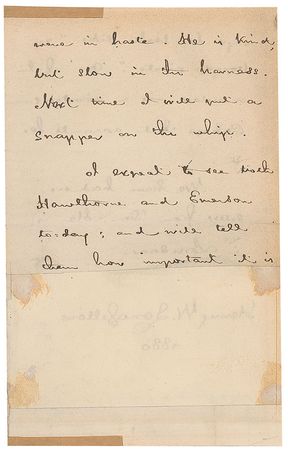 were in haste. He is kind,
but slow in the harness.
Next time I will put a
snapper on the whip.
I expect to see both
Hawthorne and Emerson
to-day; and will tell
them how important it is